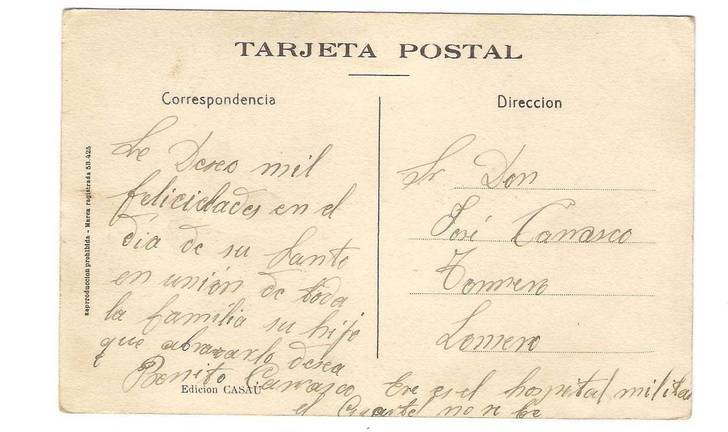 TARJETA POSTAL
Correspondencia
Le Deseo mil
felicidades en el
día de su Santo
en unión de toda
la familia su hijo
que abrazarlo desea
Benito Carrasco
Edicion CASAU
Reproduccion prohibida - Marca registrada 58.425
Direccion
Sr Don
José Carrasco
Romero
Ere es el hospital militar
el Cuarte no se be